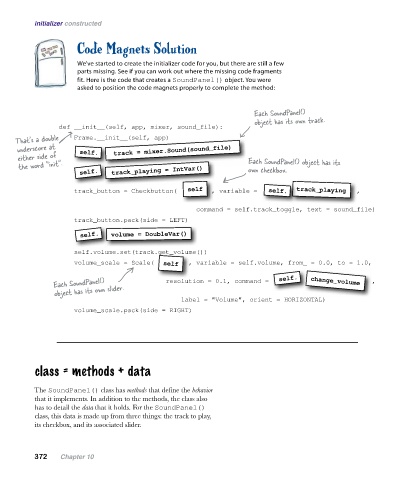 initializer constructed
Code Magnets Solution
We've started to create the initializer code for you, but there are still a few
parts missing. See if you can work out where the missing code fragments
fit. Here is the code that creates a SoundPanel() object. You were
asked to position the code magnets properly to complete the method:
Each SoundPanel()
object has its own track.
def __init__(self, app, mixer, sound_file):
That's a double
underscore at
either side of
the word "init".
Frame.__init__(self, app)
self. track = mixer.Sound(sound_file)
self. track_playing = IntVar()
Each SoundPanel() object has its
own checkbox.
track_button = Checkbutton( self , variable = self. track_playing ,
command = self.track_toggle, text = sound_file)
track_button.pack(side = LEFT)
self. volume = DoubleVar()
self.volume.set(track.get_volume())
volume_scale = Scale( self , variable = self.volume, from_ = 0.0, to = 1.0,
Each SoundPanel()
object has its own slider.
resolution = 0.1, command = self. change_volume ,
label = "Volume", orient = HORIZONTAL)
volume_scale.pack(side = RIGHT)
class = methods + data
The SoundPanel() class has methods that define the behavior
that it implements. In addition to the methods, the class also
has to detail the data that it holds. For the SoundPanel()
class, this data is made up from three things: the track to play,
its checkbox, and its associated slider.
372 Chapter 10